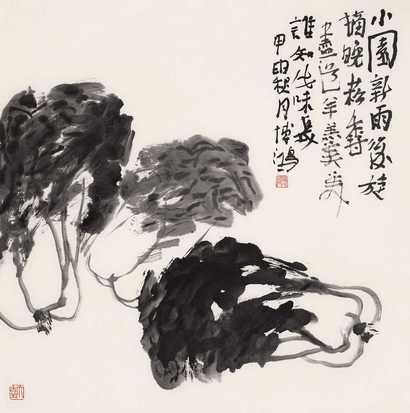 小園新雨後旋
摘晚菘香
盡道羊羔美
誰知此味長
甲申秋月博鴻